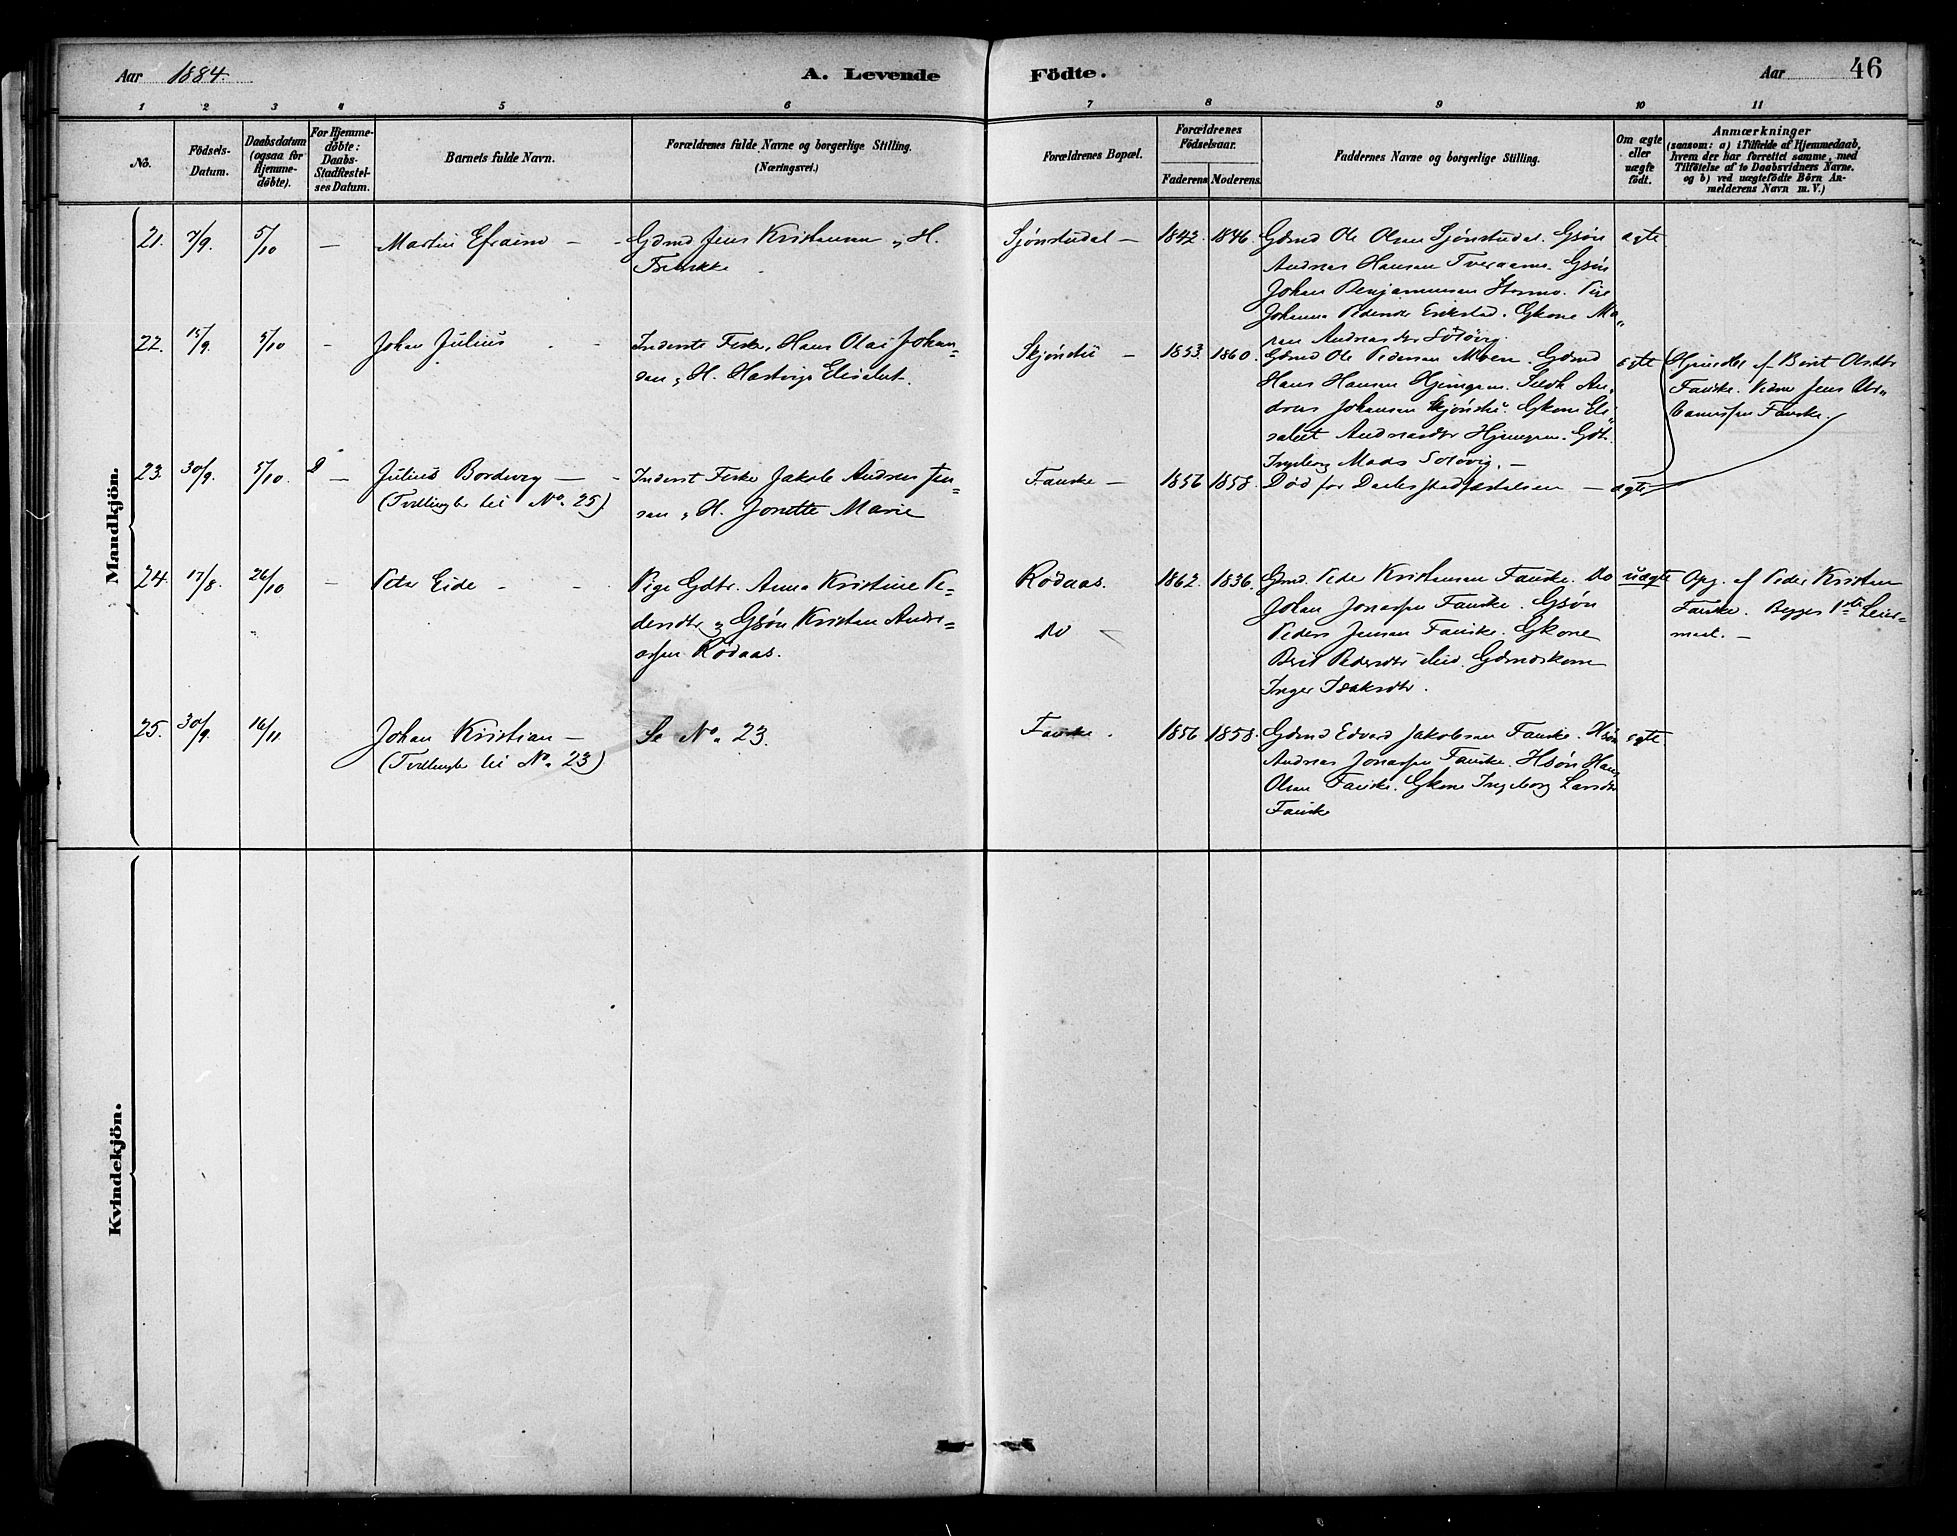 Aar 1884. A. Levende Födte. Aar 46
1 2 3 4 5 6 7 8 9 10 11
No.
Födsels-
Datum.
Daabsdatum
(ogsaa for
Hjemme-
döbte).
For Hjemme-
döbte:
Daabs-
Stadfæstel-
ses Datum.
Barnets fulde Navn.
Forældrenes fulde Navne og borgerlige Stilling.
(Næringsvei.)
Forældrenes Bopæl.
Forældrenes
Födselsaar.
Faderens. Moderens.
Faddernes Navne og borgerlige Stilling.
Om ægte
eller
uægte
födt.
Anmærkninger
(saasom: a) i Tilfælde af Hjemmedaab,
hvem der har forrettet samme, med
Tilföielse af to Daabsvidners Navne.
og b) ved uægtefödte Börn An-
melderens Navn m. V.)
Mandkjön.
21. 7/9. 5/10 — Martin Efraim — Gdmd Jens Kristiansen, H.
Sjønstudal — 1842. 1846. Gdmd Ole Olsen Sjønstudal. Gsøn ægte
Andreas Hansen Tveraamo. Gsøn
Johan Benjaminsen Stormo. Pige
Johanna Pedersdtr Erikstad. Gkone Ma-
ren Andreasdtr
22. 15/9. 5/10 - Johan Julius Inderst Fisker Hans Olai Johan-
sen, H. Hartvige Elisabet.
Skjønstu — 1853. 1860. Gdmd Ole Pedersen Moen. Gdmd ægte
Hans Hansen Hjemgam.
dreas Johansen Skjønstu. Gkone Eli-
sabet Andreasdtr Hjemgam. Gdtr.
Ingeborg Mads
Hjemdbt. af Berit Olsdtr
Fauske. Vidne Jens
Fauske.
23. 30/9. 5/10. D — Julius Bordevig —
(Tvilling til No. 25).
Inderst Fisker Jakob Andreas Jen-
sen, H. Jonette Marie
Fauske — 1856 1858. Død før Daabsstadfæstelsen — ægte
24. 17/8. 26/10 - Peter Eide - Pige Gdtr. Anna Kristine Pe-
dersdtr og Gsøn Kristen Andre-
assen Rødaas.
Rødaas. 1862. 1836. Gmd. Peder Kristensen Fauske. Do uægte
do — Johan Jonassen Fauske. Gsøn
Peder Jensen Fauske. Gkone
Berit Pedersdtr Gdmdskone
Inger Isaksdtr.
Opg. af Peder Kristen
Fauske. Begges 1ste Leier-
maal. —
25. 30/9. 16/11 Johan Kristian —
(Tvilling til No. 23)
Se No. 23. Fauske. 1856 1858. Gdmd Edvard Jakobsen Fauske. Hsøn ægte
Andreas Jonassen Fauske. Hsøn Hans
Olsen Fauske. Gkone Ingeborg Larsdtr
Fauske
Kvindekjön.